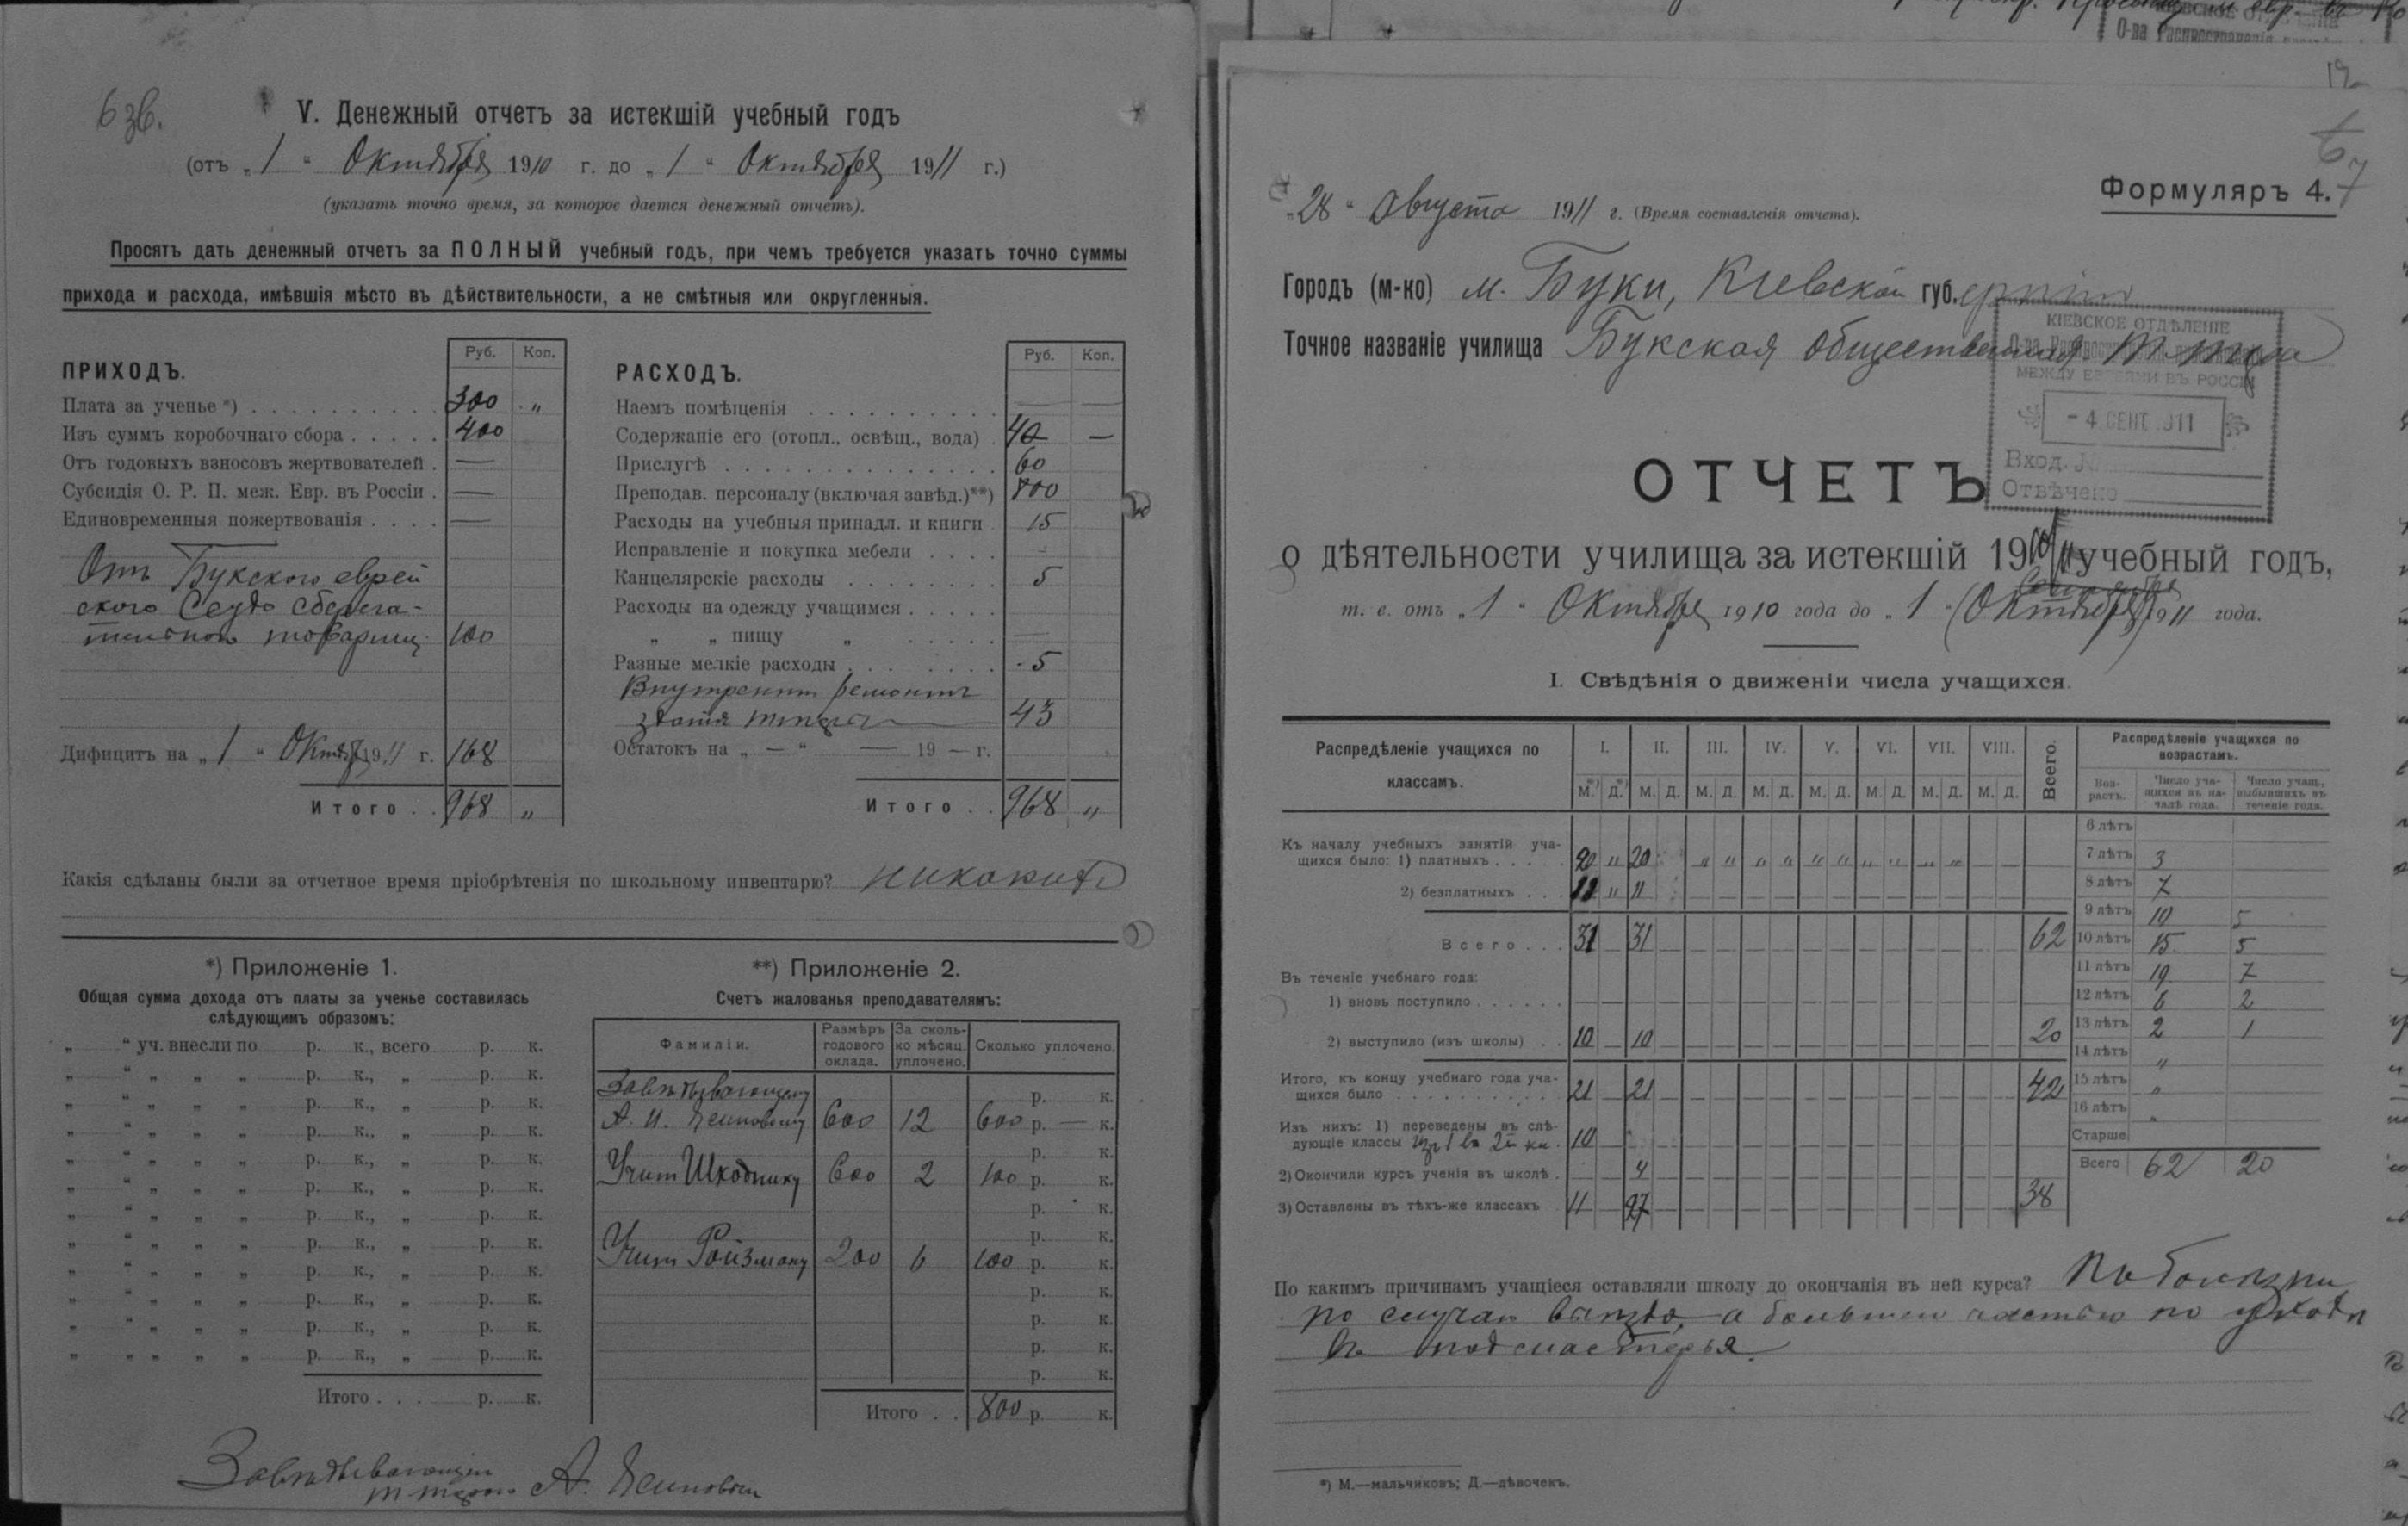 6 зв.
V. Денежный отчетъ за истекшій учебный годъ
(отъ „1“ Октября 1910 г. до „1“ Октября 1911 г.)
(указать точно время, за которое дается денежный отчетъ).
Просятъ дать денежный отчетъ за ПОЛНЫЙ учебный годъ, при чемъ требуется указать точно суммы
прихода и расхода, имѣвшія мѣсто въ дѣйствительности, а не смѣтныя или округленныя.
ПРИХОДЪ. Руб. Коп.
Плата за ученье *) 300 „
Изъ суммъ коробочнаго сбора 400
Отъ годовыхъ взносовъ жертвователей —
Субсидія О. Р. П. меж. Евр. въ Россіи —
Единовременныя пожертвованія —
Отъ Букского еврей
ского Ссудо сберега-
тельнаго товарищ. 100
Дифицитъ на „1“ Октября 1911 г. 168
Итого 968 „
РАСХОДЪ. Руб. Коп.
Наемъ помѣщенія — —
Содержаніе его (отопл., освѣщ., вода) 40 —
Прислугѣ 60
Преподав. персоналу (включая завѣд.)**) 800
Расходы на учебныя принадл. и книги 15
Исправленіе и покупка мебели -
Канцелярскіе расходы 5
Расходы на одежду учащимся
„ „ пищу „ —
Разные мелкіе расходы 5
Внутренній ремонтъ
зданія 43
Остатокъ на „—“ — 19 — г.
Итого 968 „
Какія сдѣланы были за отчетное время пріобрѣтенія по школьному инвентарю? никакихъ
*) Приложеніе 1.
Общая сумма дохода отъ платы за ученье составилась
слѣдующимъ образомъ:
„ “ уч. внесли по р. к., всего р. к.
„ “ „ „ „ р. к., „ р. к.
„ “ „ „ „ р. к., „ р. к.
„ “ „ „ „ р. к., „ р. к.
„ “ „ „ „ р. к., „ р. к.
„ “ „ „ „ р. к., „ р. к.
„ “ „ „ „ р. к., „ р. к.
„ “ „ „ „ р. к., „ р. к.
„ “ „ „ „ р. к., „ р. к.
„ “ „ „ „ р. к., „ р. к.
„ “ „ „ „ р. к., „ р. к.
„ “ „ „ „ р. к., „ р. к.
Итого . . . р. к.
**) Приложеніе 2.
Счетъ жалованья преподавателямъ:
Фамиліи. Размѣръ годового оклада. За сколько мѣсяц. уплочено. Сколько уплочено.
Завѣдывающему р. к.
А. И. 600 12 600 р. — к.
р. к.
Учит Школнику 600 2 100 р. к.
р. к.
р. к.
Учит Ройзману 200 6 100 р. к.
р. к.
р. к.
р. к.
р. к.
Итого . . 800 р. к.
Завѣдывающій
А.
„28“ Августа 1911 г. (Время составленія отчета).
Формуляръ 4.
7
Городъ (м-ко) м. Буки, Кіевской губ.ерніи
Точное названіе училища Букская общественная
КІЕВСКОЕ ОТДѢЛЕНІЕ
МЕЖДУ ЕВРЕЯМИ ВЪ РОССІИ
- 4 СЕНТ. 911
Вход. №
Отвѣчено
ОТЧЕТЪ
о дѣятельности училища за истекшій 1910/11 учебный годъ,
Сентября
т. е. отъ „1“ Октября 1910 года до „1“ (Октября) 1911 года.
I. Свѣдѣнія о движеніи числа учащихся.
Распредѣленіе учащихся по классамъ. I. II. III. IV. V. VI. VII. VIII. Всего.
М.*) Д.*) М. Д. М. Д. М. Д. М. Д. М. Д. М. Д. М. Д.
Къ началу учебныхъ занятій уча-
щихся было: 1) платныхъ 20 „ 20
2) безплатныхъ 11 „ 11
Всего 31 31 62
Въ теченіе учебнаго года:
1) вновь поступило
2) выступило (изъ школы) 10 10 20
Итого, къ концу учебнаго года уча-
щихся было 21 21 42
Изъ нихъ: 1) переведены въ слѣ-
дующіе классы изъ 1 въ 2й кл. 10
2) Окончили курсъ ученія въ школѣ 4
3) Оставлены въ тѣхъ-же классахъ 11 27 38
Распредѣленіе учащихся по возрастамъ.
Возрастъ. Число учащихся въ началѣ года. Число учащ., выбывшихъ въ теченіе года.
6 лѣтъ
7 лѣтъ 3
8 лѣтъ 7
9 лѣтъ 10 5
10 лѣтъ 15 5
11 лѣтъ 19 7
12 лѣтъ 6 2
13 лѣтъ 2 1
14 лѣтъ „
15 лѣтъ „
16 лѣтъ „
Старше
Всего 62 20
По какимъ причинамъ учащіеся оставляли школу до окончанія въ ней курса? По болѣзни
по случаю выѣзда, а большею частью по уходѣ
въ подмастерья.
*) М.—мальчиковъ; Д.—дѣвочекъ.